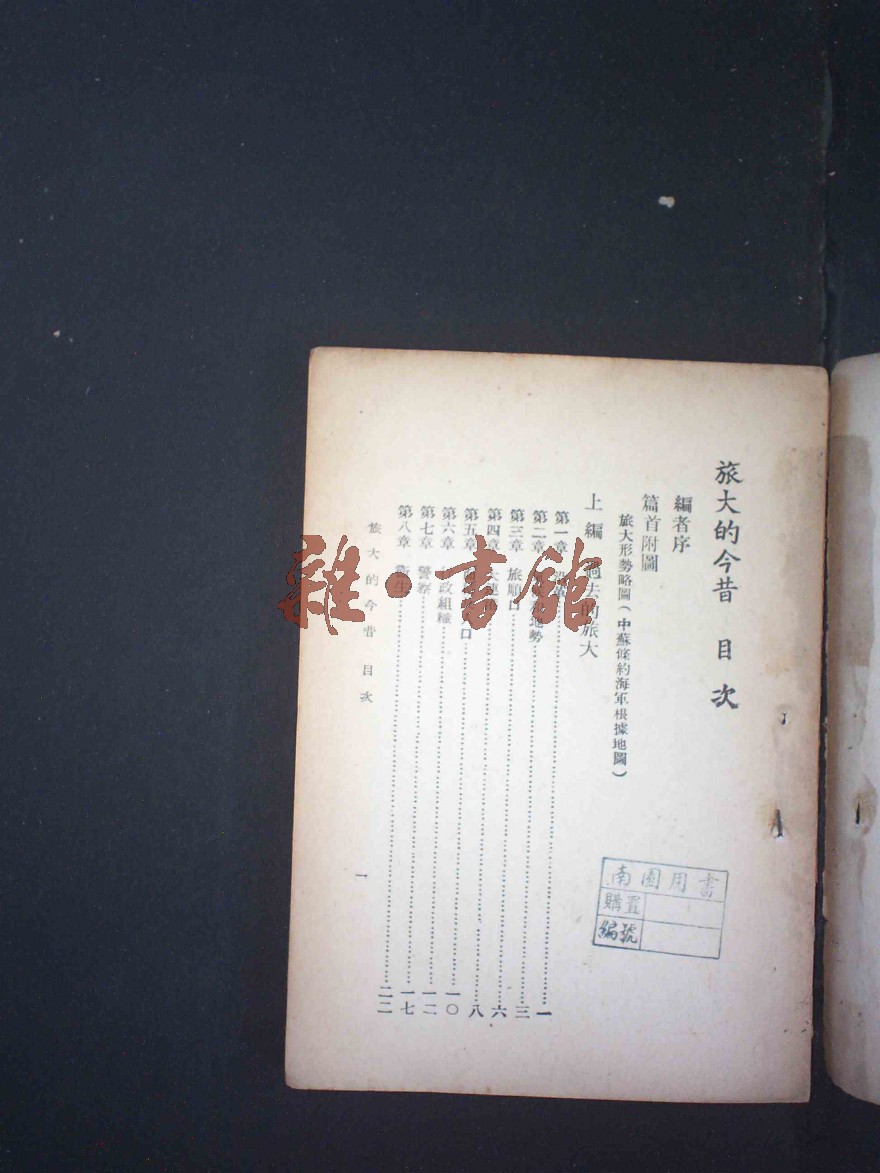 旅大的今昔 目次
編者序
篇首附圖
旅大形勢略圖(中蘇條約海軍根據地圖)
上編 過去的旅大
第一章 ……一
第二章 地勢……三
第三章 旅順口……六
第四章 大連……八
第五章 口……一〇
第六章 政組織……一二
第七章 警察……一七
第八章 衛生……二二
旅大的今昔 目次
一
南園用書
購置
編號
雜·書館